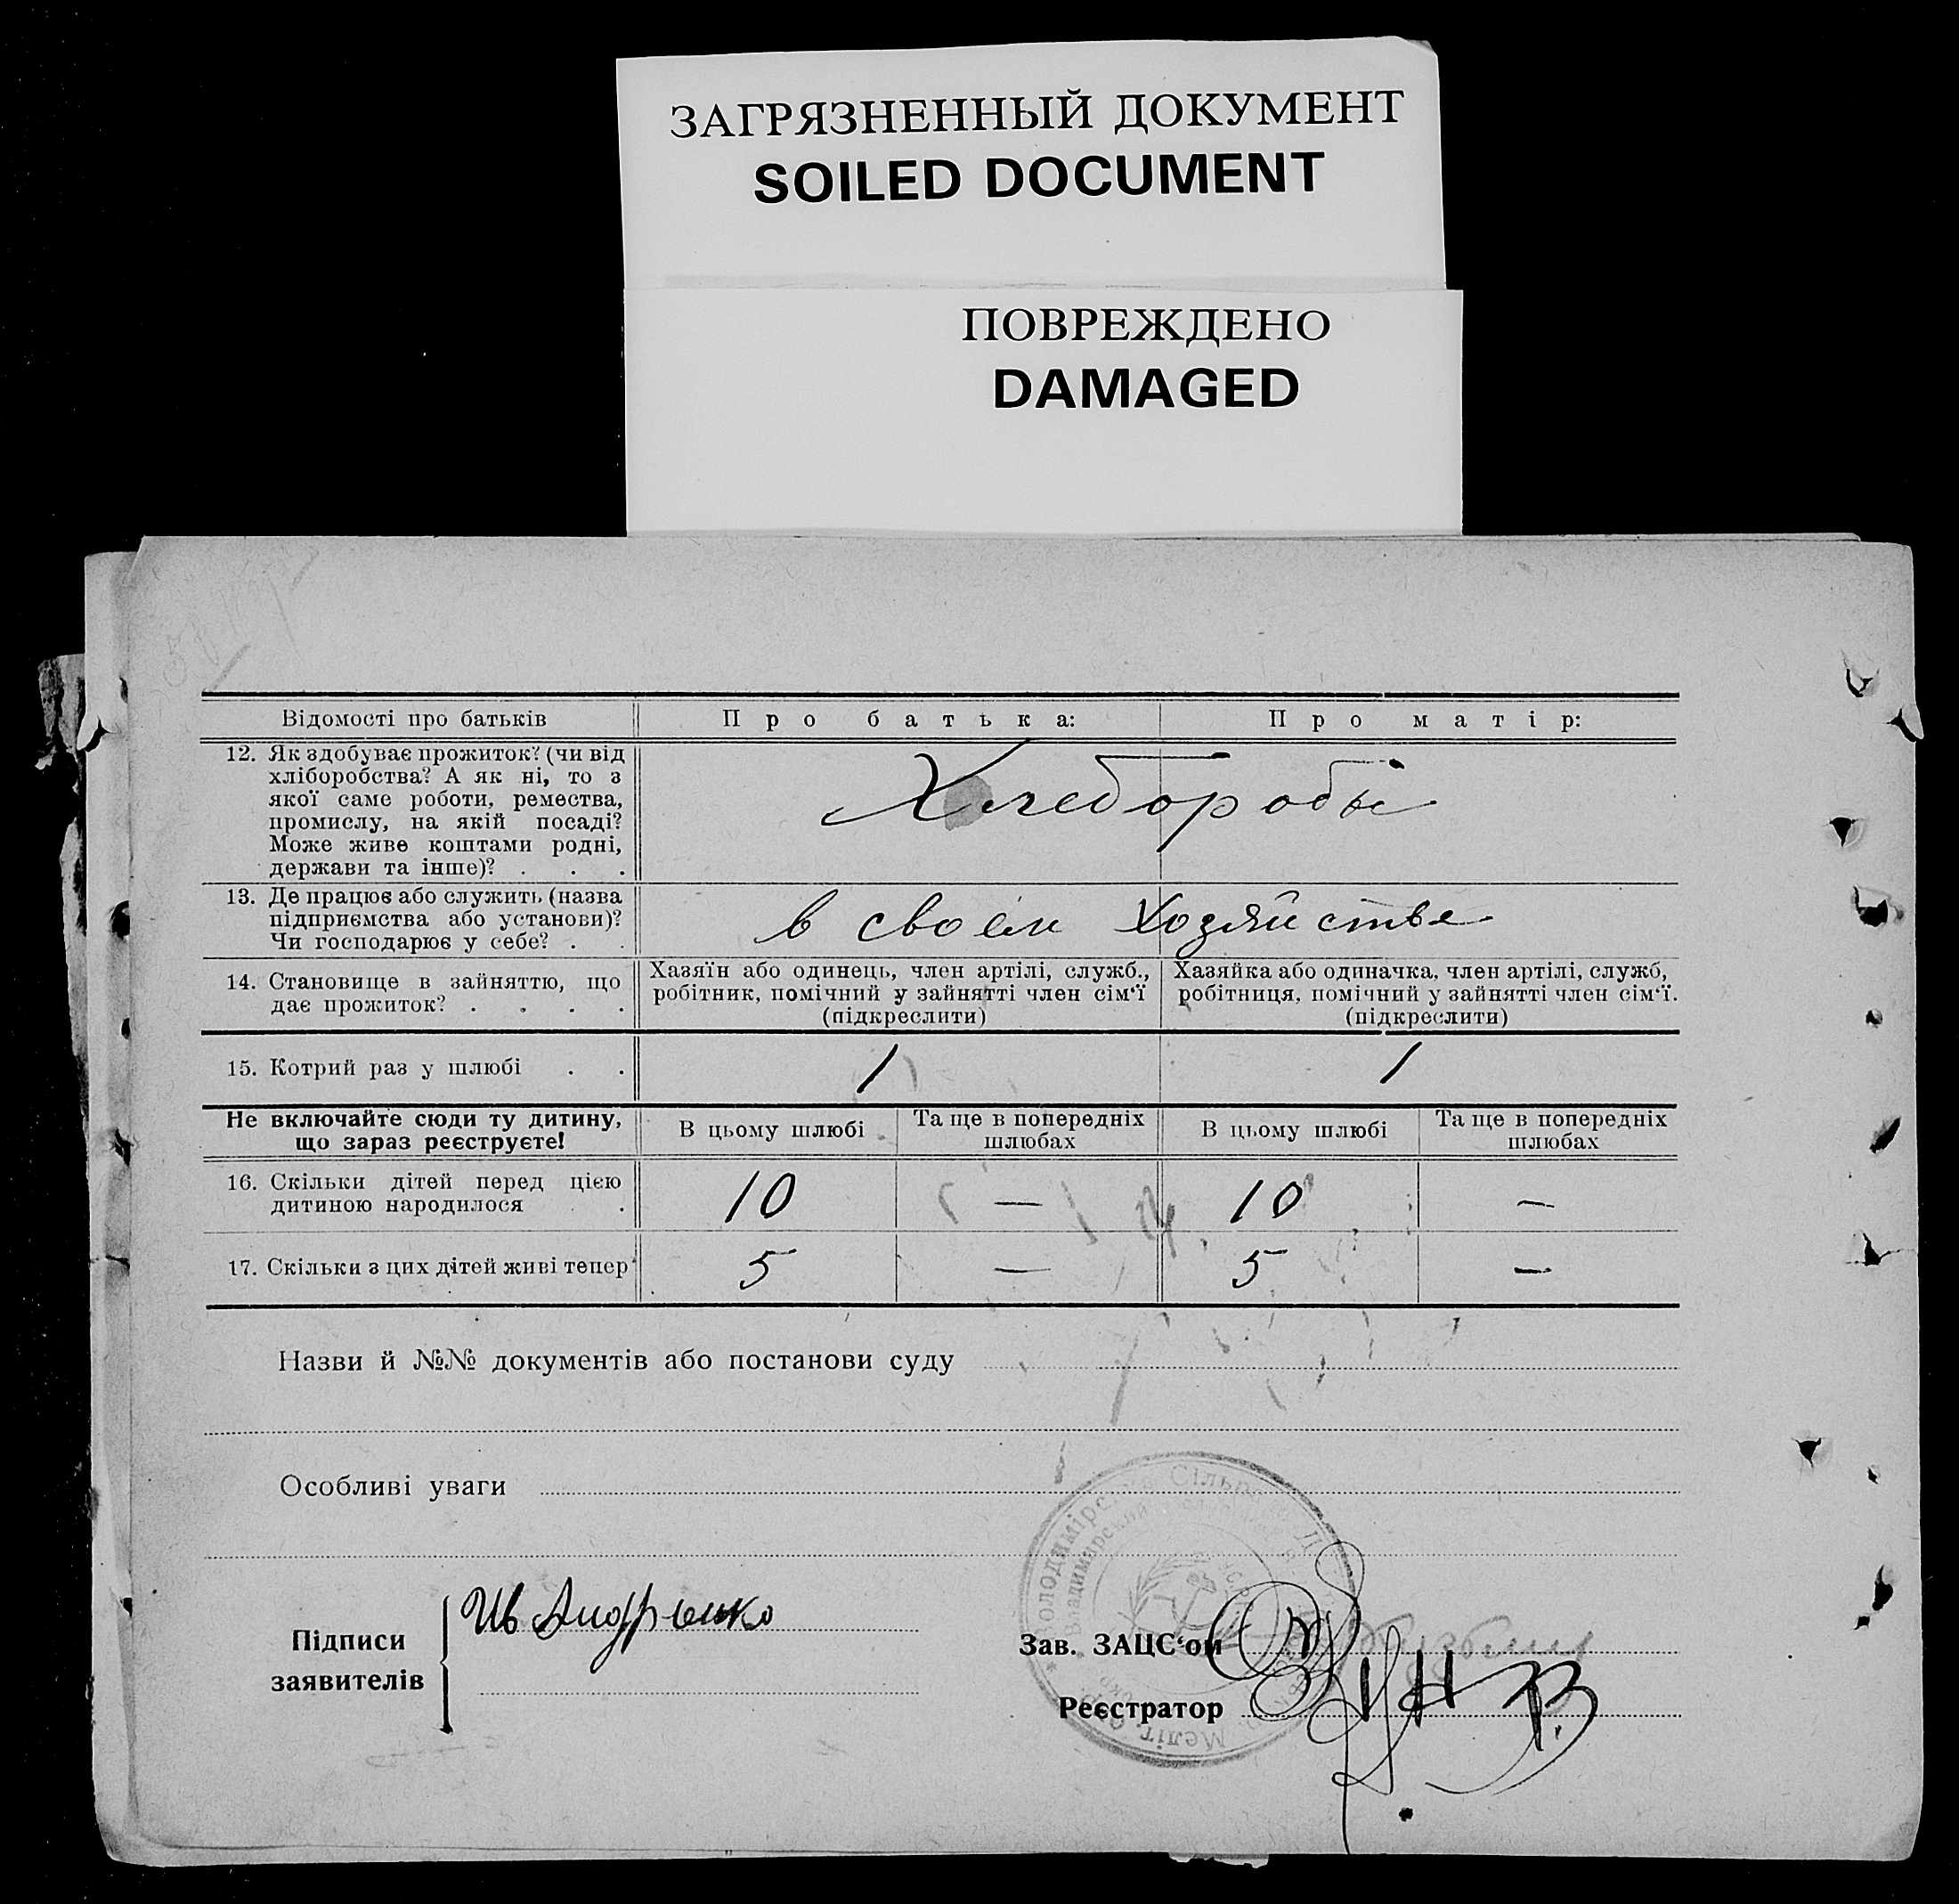 ЗАГРЯЗНЕННЫЙ ДОКУМЕНТ
SOILED DOCUMENT
ПОВРЕЖДЕНО
DAMAGED
Відомості про батьків
Про батька:
Про матір:
12. Як здобуває прожиток? (чи від
хліборобства? А як ні, то з
якої саме роботи, ремества,
промислу, на якій посаді?
Може живе коштами родні,
держави та інше)? . . .
Хлеборобы
13. Де працює або служить (назва
підприємства або установи)?
Чи господарює у себе? . .
в своем хозяйстве
14. Становище в зайняттю, що
дає прожиток? . . . .
Хазяїн або одинець, член артілі, служб.,
робітник, помічний у зайнятті член сім'ї
(підкреслити)
Хазяйка або одиначка, член артілі, служб,
робітниця, помічний у зайнятті член сім'ї.
(підкреслити)
15. Котрий раз у шлюбі . .
1
1
Не включайте сюди ту дитину,
що зараз реєструєте!
В цьому шлюбі
Та ще в попередніх
шлюбах
В цьому шлюбі
Та ще в попередніх
шлюбах
16. Скільки дітей перед цією
дитиною народилося .
10
—
10
—
17. Скільки з цих дітей живі тепер
5
—
5
—
Назви й №№ документів або постанови суду
Особливі уваги
Володимірська Сільрада
Владимирский
Меліт.
Підписи
заявителів
Ив Андрющенко
Зав. ЗАЦС'ом
Реєстратор